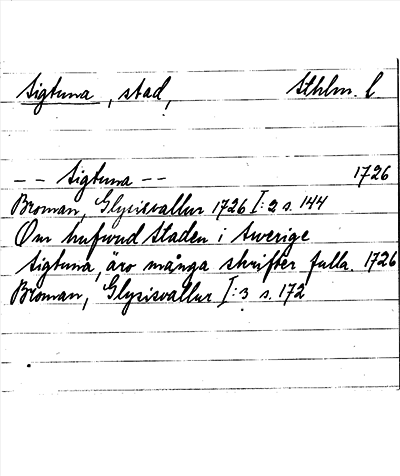 Sigtuna, stad, Sthlm. l
-- Sigtuna -- 1726
Broman, Glysisvallur 1726 I:2 s. 144
Om hufwud Staden i Swerige
Sigtuna, äro många skrifter fulla. 1726
Broman, Glysisvallur I:3 s. 172